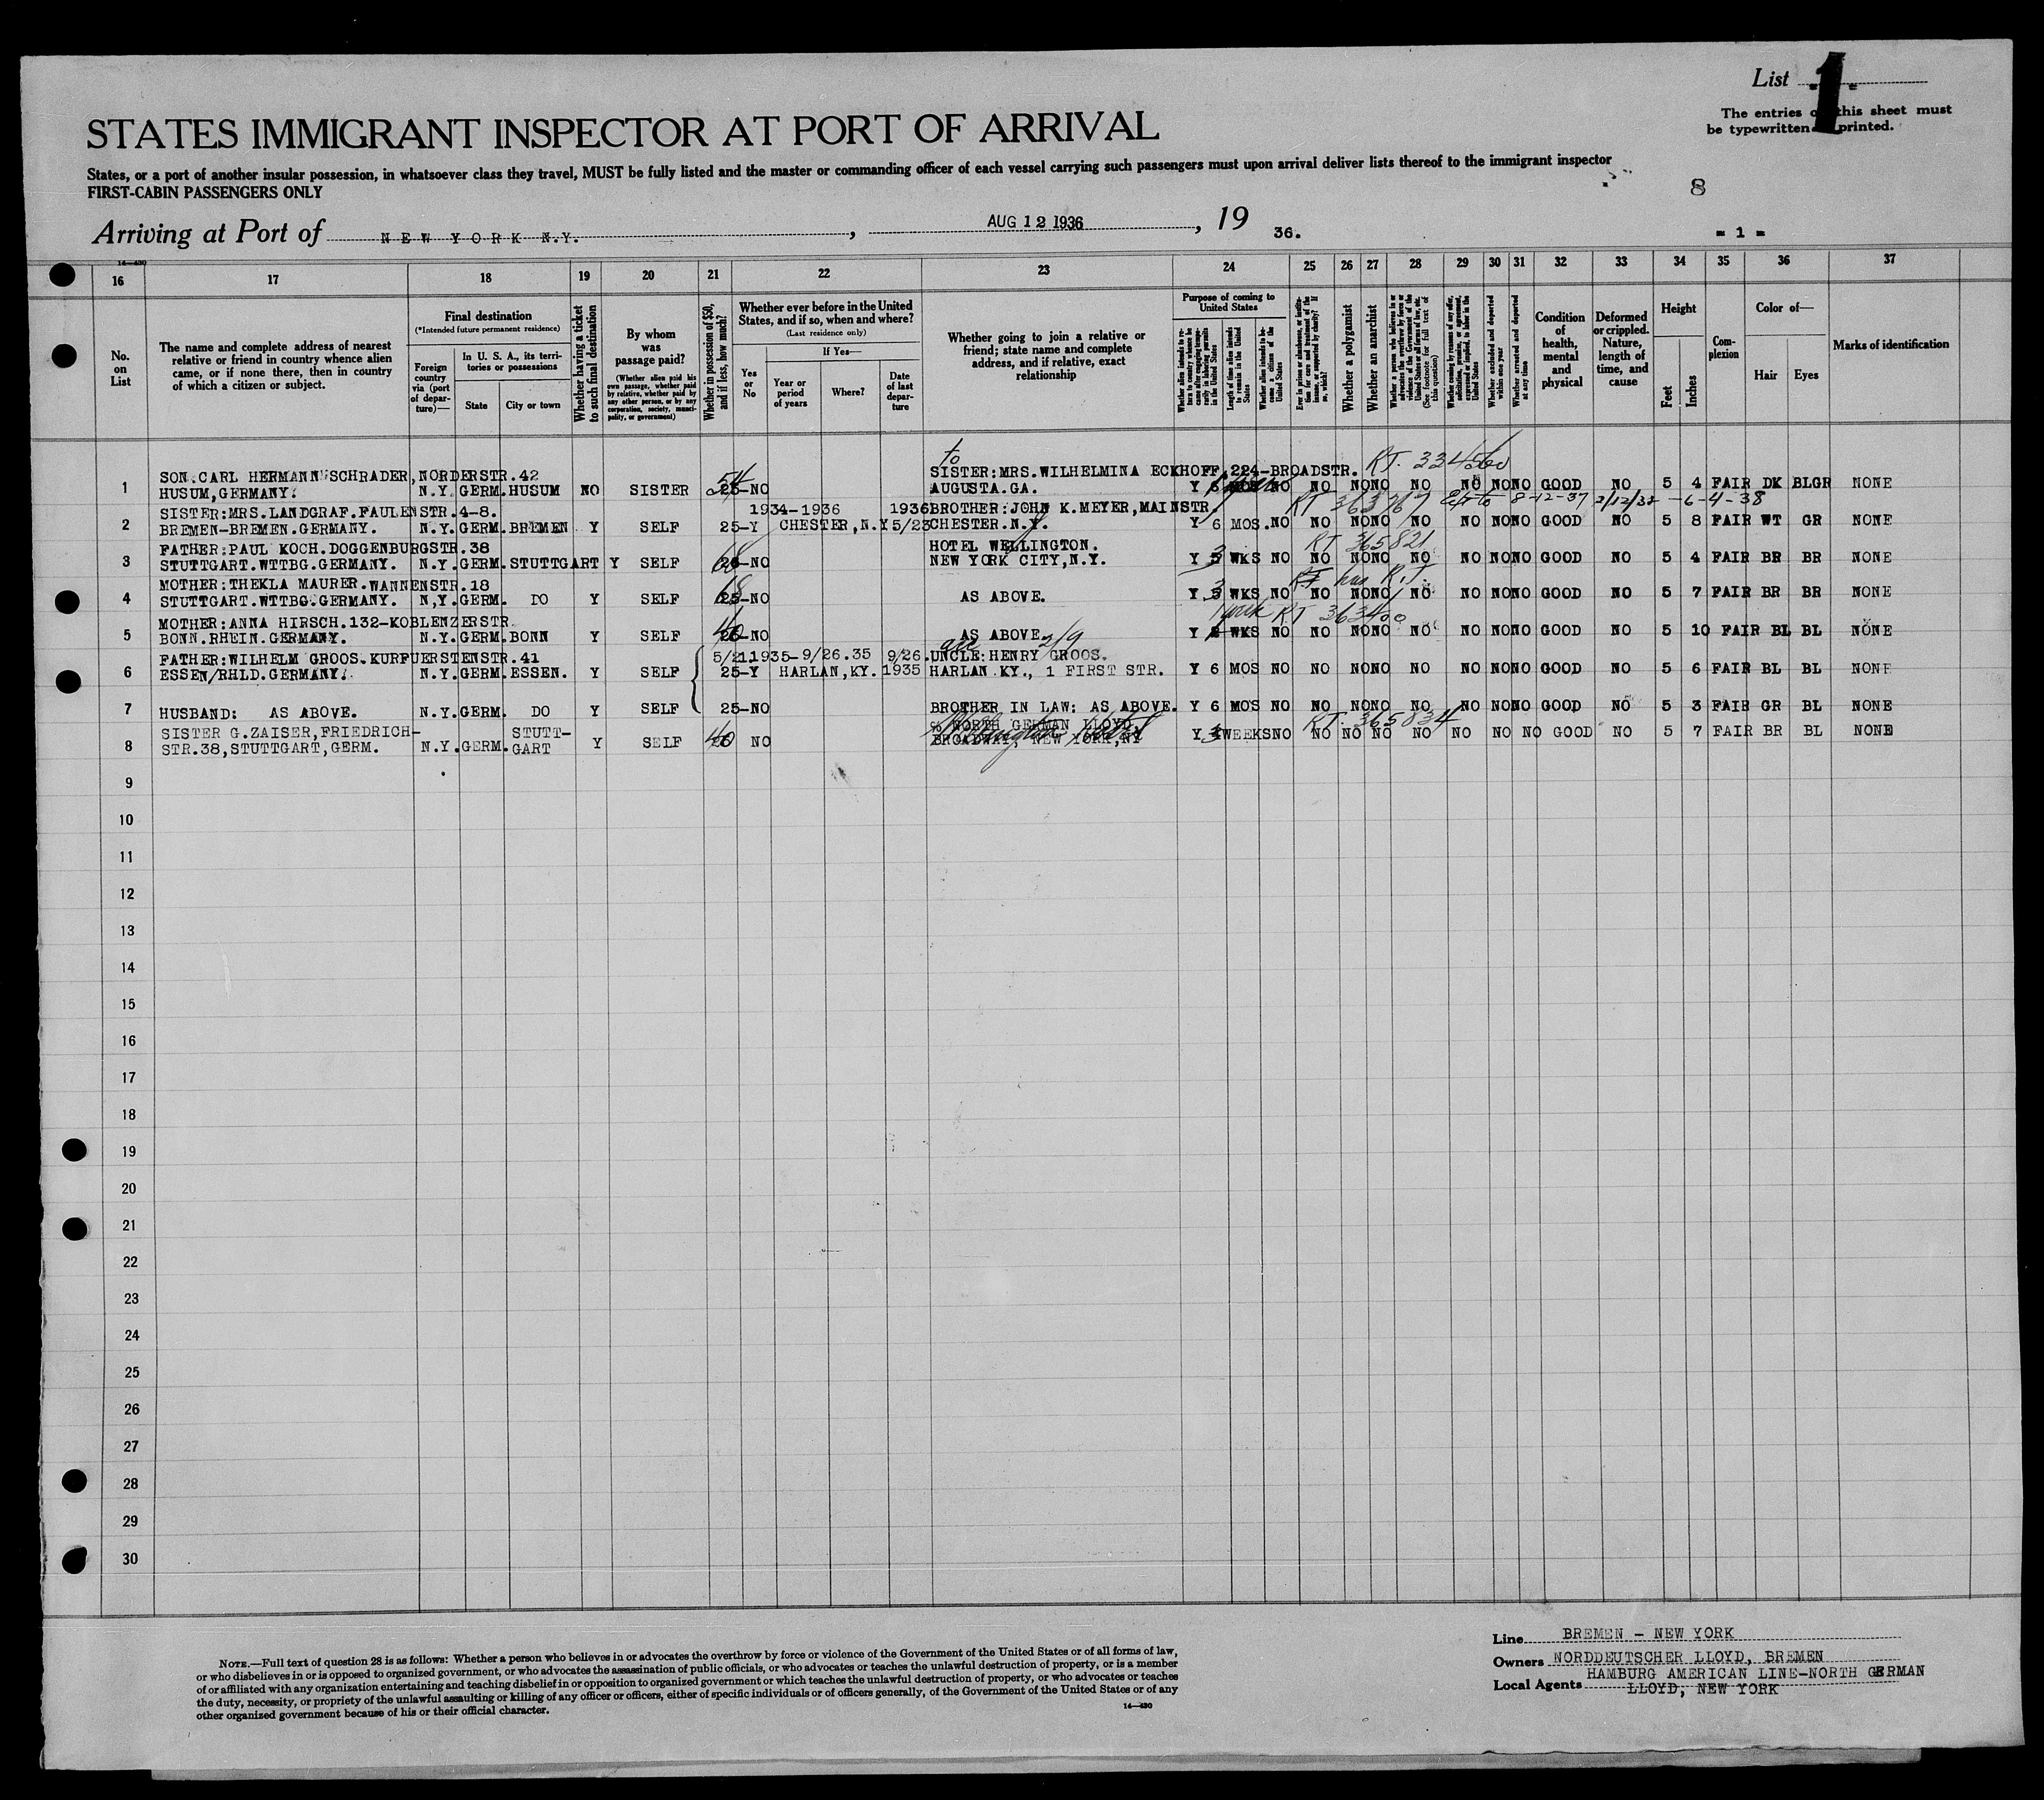 List 1
The entries on this sheet must
be typewritten or printed.
STATES IMMIGRANT INSPECTOR AT PORT OF ARRIVAL
States, or a port of another insular possession, in whatsoever class they travel, MUST be fully listed and the master or commanding officer of each vessel carrying such passengers must upon arrival deliver lists thereof to the immigrant inspector
FIRST-CABIN PASSENGERS ONLY
8
Arriving at Port of NEW YORK N.Y. , AUG 12 1936 , 19 36.
- 1 -
14-430
16 17 18 19 20 21 22 23 24 25 26 27 28 29 30 31 32 33 34 35 36 37
No. on List
The name and complete address of nearest relative or friend in country whence alien came, or if none there, then in country of which a citizen or subject.
Final destination
(*Intended future permanent residence)
Foreign country via (port of departure)—
In U. S. A., its territories or possessions
State
City or town
Whether having a ticket to such final destination
By whom was passage paid?
(Whether alien paid his own passage, whether paid by relative, whether paid by any other person, or by any corporation, society, municipality, or government)
Whether in possession of $50, and if less, how much?
Whether ever before in the United States, and if so, when and where?
(Last residence only)
Yes or No
If Yes—
Year or period of years
Where?
Date of last departure
Whether going to join a relative or friend; state name and complete address, and if relative, exact relationship
Purpose of coming to United States
Whether alien intends to return to country whence he came after engaging temporarily in laboring pursuits in the United States
Length of time alien intends to remain in the United States
Whether alien intends to become a citizen of the United States
Ever in prison or almshouse, or institution for care and treatment of the insane, or supported by charity? If so, which?
Whether a polygamist
Whether an anarchist
Whether a person who believes in or advocates the overthrow by force or violence of the Government of the United States or all forms of law, etc. (See footnote for full text of this question)
Whether coming by reason of any offer, solicitation, promise, or agreement, expressed or implied, to labor in the United States
Whether excluded and deported within one year
Whether arrested and deported at any time
Condition of health, mental and physical
Deformed or crippled. Nature, length of time, and cause
Height
Feet
Inches
Complexion
Color of—
Hair
Eyes
Marks of identification
to RT. 334560
SON.CARL HERMANN SCHRADER,NORDERSTR.42 SISTER:MRS.WILHELMINA ECKHOFF,224-BROADSTR.
1 HUSUM,GERMANY. N.Y. GERM.HUSUM NO SISTER 25-NO AUGUSTA.GA. Y 6 MOS NO NO NO NO NO NO NO NO GOOD NO 5 4 FAIR DK BLGR NONE
RT 363767 Ext to 8-12-37 2/12/38 -6-4-38
SISTER:MRS.LANDGRAF.FAULENSTR.4-8. 1934-1936 1936 BROTHER:JOHN K.MEYER,MAINSTR.
2 BREMEN-BREMEN.GERMANY. N.Y.GERM.BREMEN Y SELF 25-Y CHESTER,N.Y. 5/23 CHESTER.N.Y. Y 6 MOS.NO NO NO NO NO NO NO NO GOOD NO 5 8 FAIR WT GR NONE
FATHER:PAUL KOCH.DOGGENBURGSTR.38 HOTEL WELLINGTON. RT 365821
3 STUTTGART.WTTBG.GERMANY. N.Y.GERM.STUTTGART Y SELF 68 25-NO NEW YORK CITY,N.Y. Y 3 WKS NO NO NO NO NO NO NO NO GOOD NO 5 4 FAIR BR BR NONE
MOTHER:THEKLA MAURER.WANNENSTR.18 has R.T.
4 STUTTGART.WTTBG.GERMANY. N.Y.GERM. DO Y SELF 25-NO AS ABOVE. Y 3 WKS NO NO NO NO NO NO NO NO GOOD NO 5 7 FAIR BR BR NONE
MOTHER:ANNA HIRSCH.132-KOBLENZERSTR. 1 week RT 363400
5 BONN.RHEIN.GERMANY. N.Y.GERM.BONN Y SELF 40 25-NO AS ABOVE. Y 2 WKS NO NO NO NO NO NO NO NO GOOD NO 5 10 FAIR BL BL NONE
2/9
FATHER:WILHELM GROOS.KURFUERSTENSTR.41 5/21.1935-9/26.35 9/26. UNCLE:HENRY GROOS.
6 ESSEN/RHLD.GERMANY. N.Y.GERM.ESSEN. Y SELF 25-Y HARLAN,KY. 1935 HARLAN KY., 1 FIRST STR. Y 6 MOS NO NO NO NO NO NO NO NO GOOD NO 5 6 FAIR BL BL NONE
7 HUSBAND: AS ABOVE. N.Y.GERM. DO Y SELF 25-NO BROTHER IN LAW: AS ABOVE. Y 6 MOS NO NO NO NO NO NO NO NO GOOD NO 5 3 FAIR GR BL NONE
SISTER G.ZAISER,FRIEDRICH- STUTT- % NORTH GERMAN LLOYD, RT. 365834
8 STR.38,STUTTGART,GERM. N.Y.GERM.GART Y SELF 40 NO BROADWAY, NEW YORK,NY Y 3 WEEKS NO NO NO NO NO NO NO NO GOOD NO 5 7 FAIR BR BL NONE
9
10
11
12
13
14
15
16
17
18
19
20
21
22
23
24
25
26
27
28
29
30
NOTE.—Full text of question 28 is as follows: Whether a person who believes in or advocates the overthrow by force or violence of the Government of the United States or of all forms of law,
or who disbelieves in or is opposed to organized government, or who advocates the assassination of public officials, or who advocates or teaches the unlawful destruction of property, or is a member
of or affiliated with any organization entertaining and teaching disbelief in or opposition to organized government or which teaches the unlawful destruction of property, or who advocates or teaches
the duty, necessity, or propriety of the unlawful assaulting or killing of any officer or officers, either of specific individuals or of officers generally, of the Government of the United States or of any
other organized government because of his or their official character.
14-430
Line BREMEN - NEW YORK
Owners NORDDEUTSCHER LLOYD, BREMEN
Local Agents HAMBURG AMERICAN LINE-NORTH GERMAN
LLOYD, NEW YORK